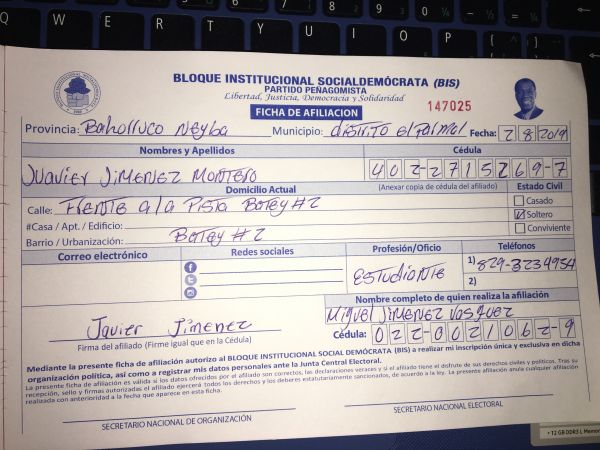 Q W E R T Y U I O P
BLOQUE INSTITUCIONAL SOCIALDEMÓCRATA (BIS)
PARTIDO PEÑAGOMISTA
Libertad, Justicia, Democracia y Solidaridad
FICHA DE AFILIACION
147025
Provincia: Bahorruco Neyba Municipio: distrito el palmal Fecha: 2 8 2019
Nombres y Apellidos Cédula
Juavier Jimenez Montero 402-2715269-7
Domicilio Actual (Anexar copia de cédula del afiliado) Estado Civil
Calle: Frente a la Pista Botey #2 Casado
#Casa / Apt. / Edificio: Soltero
Barrio / Urbanización: Botey #2 Conviviente
Correo electrónico Redes sociales Profesión/Oficio Teléfonos
Estudiante 1) 829-3234954
2)
Nombre completo de quien realiza la afiliación
Miguel Jimenez Vasquez
Javier Jimenez
Firma del afiliado (Firme igual que en la Cédula) Cédula: 022-0021062-9
Mediante la presente ficha de afiliación autorizo al BLOQUE INSTITUCIONAL SOCIAL DEMÓCRATA (BIS) a realizar mi inscripción única y exclusiva en dicha
organización política, así como a registrar mis datos personales ante la Junta Central Electoral.
La presente ficha de afiliación es válida si los datos ofrecidos por el afiliado son correctos, las declaraciones veraces y si el afiliado tiene el disfrute de sus derechos civiles y políticos. Tras su
recepción, sello y firmas autorizadas el afiliado ejercerá todos los derechos y los deberes estatutariamente sancionados, de acuerdo a la ley. La presente afiliación anula cualquier afiliación
realizada con anterioridad a la fecha que aparece en esta ficha.
SECRETARIO NACIONAL DE ORGANIZACIÓN SECRETARIO NACIONAL ELECTORAL
• 12 GB DDR3 L Memor